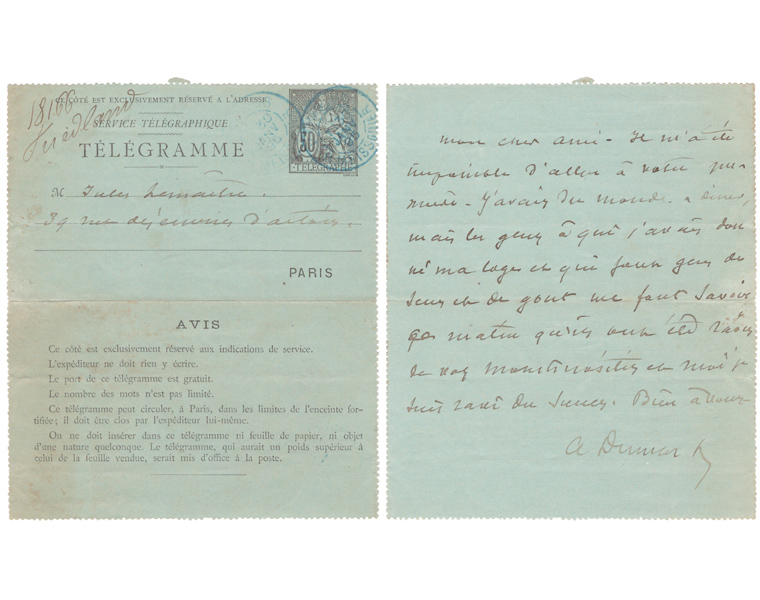 18166
Friedland
CE CÔTÉ EST EXCLUSIVEMENT RÉSERVÉ A L'ADRESSE
SERVICE TÉLÉGRAPHIQUE
TÉLÉGRAMME
30
TÉLÉGRAPHE
M Jules Lemaître.
39 rue des écuries d'artois.
PARIS
AVIS
Ce côté est exclusivement réservé aux indications de service.
L'expéditeur ne doit rien y écrire.
Le port de ce télégramme est gratuit.
Le nombre des mots n'est pas limité.
Ce télégramme peut circuler, à Paris, dans les limites de l'enceinte for-
tifiée; il doit être clos par l'expéditeur lui-même.
On ne doit insérer dans ce télégramme ni feuille de papier, ni objet
d'une nature quelconque. Le télégramme, qui aurait un poids supérieur à
celui de la feuille vendue, serait mis d'office à la poste.
mon cher ami - Il m'a été
impossible d'aller à votre pre-
mière - J'avais du monde a diner,
mais les gens à qui j'avais don
né ma loge et qui sont gens de
sens et de gout me font savoir
ce matin qu'ils ont été ravis
de vos monstruosités et moi je
suis ravi du succes. Bien à vous
A Dumas f